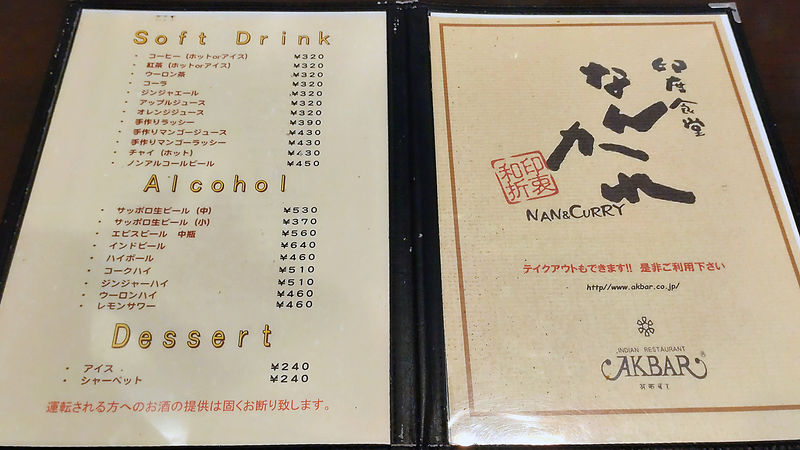 Soft Drink
・ コーヒー (ホットorアイス) ¥320
・ 紅茶 (ホットorアイス) ¥320
・ ウーロン茶 ¥320
・ コーラ ¥320
・ ジンジャエール ¥320
・ アップルジュース ¥320
・ オレンジジュース ¥320
・ 手作りラッシー ¥390
・ 手作りマンゴージュース ¥430
・ 手作りマンゴーラッシー ¥430
・ チャイ (ホット) ¥430
・ ノンアルコールビール ¥450
Alcohol
・ サッポロ生ビール (中) ¥530
・ サッポロ生ビール (小) ¥370
・ エビスビール 中瓶 ¥560
・ インドビール ¥640
・ ハイボール ¥460
・ コークハイ ¥510
・ ジンジャーハイ ¥510
・ ウーロンハイ ¥460
・ レモンサワー ¥460
Dessert
・ アイス ¥240
・ シャーベット ¥240
運転される方へのお酒の提供は固くお断り致します。
印度食堂
なんかれ
印衷
和折
NAN&CURRY
テイクアウトもできます!! 是非ご利用下さい
http//www.akbar.co.jp/
INDIAN RESTAURANT
AKBAR®
अकबर